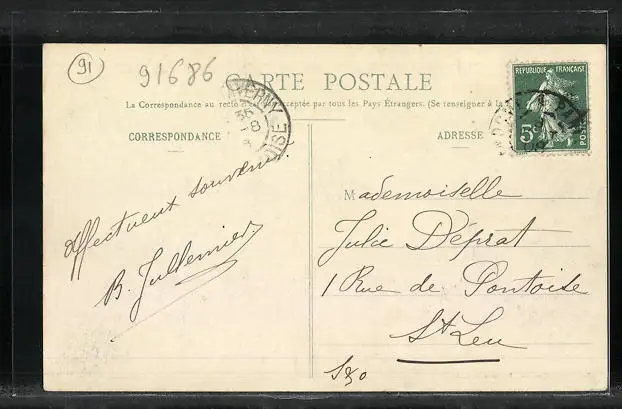 91
91686
CARTE POSTALE
La Correspondance au recto acceptée par tous les Pays Étrangers. (Se renseigner à la
CORRESPONDANCE
ADRESSE
RÉPUBLIQUE FRANÇAISE
5c
POSTES
Affectueux souvenir.
B. Jullemier
Mademoiselle
Julie Déprat
1 Rue de Pontoise
St Leu